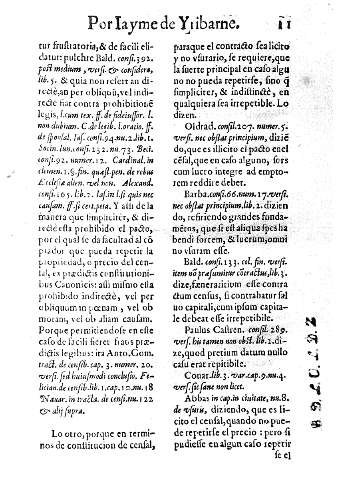 Por Iayme de Yribarne. 11
tur frustratoria, & de facili eli-
datur: pulchre Bald. consi. 392.
post medium, versi. & considera,
lib. 5. & quia non essent an di-
rectè, an per obliquũ, vel indi-
recte fiat contra prohibitionẽ
legis, secum tex. ff. de fideiussor. l.
non dubium. C. de legib. l. oratio. ff.
de sponsal.
Socin. Iun. consi. 132. nu. 73. Beci.
consi. 92. numer. 12. Cardinal. in
clemen. 1. §. fin. quæst. pen. de rebus
Ecclesiæ alien. vel non. Alexand.
consi. 105. lib. 7. Ias. in l. si quis nec
causam. ff. si cert. peta. Y assi de la
manera que simpliciter, & di-
recte està prohibido el pacto,
por el qual se da facultad al cõ
prador que pueda repetir la
propriedad, o precio del cen-
sal, ex prædictis constitutioni-
bus Canonicis: assi mismo està
prohibido indirectè, vel per
obliquum in pœnam, vel ob
moram, vel ob aliam causam.
Porque permitiendose en este
caso de facili fieret fraus præ-
dictis legibus: ita Anto. Com.
tract. de censib. cap. 3. numer. 20.
versi. sed huiusmodi conclusio. Fe-
lician. de censib. lib. 1. cap. 10. nu. 18
Nauar. in tracta. de censi. nu. 122
& alij supra.
Lo otro, porque en termi-
nos de constitucion de censal,
paraque el contracto sea licito
y no vsurario, se requiere, que
la suerte principal en caso algu
no no pueda repetirse, sino q̃
simpliciter, & indistinctè, en
qualquiera sea irrepetible. Lo
dizen.
Oldrad. consil. 207. numer. 5.
versi. nec obstat principium, diziẽ
do, que es illicito el pacto en el
cẽsal, que en caso alguno, sors
cum lucro integre ad empto-
rem reddi & debet.
Barba. consi. 66. num. 17. versi.
nec obstat principium lib. 2. dizien
do, refiriendo grandes funda-
mẽtos, que si est aliqua spes ha
bendi sortem, & lucrum, omni
no vsuram esse.
Bald. consi. 133. cel. fin. versi.
item nõ præsumitur cõtractus, lib. 3.
dize, fœneratitium esse contra-
ctum census, si contrahatur sal
uo capitali, cum ipsum capita-
le debeat esse irrepetibile.
Paulus Castren. consil. 289.
versi. his tamen non obst. lib. 2. di-
ze, quod pretium datum nullo
casu erat repetibile.
Couar. lib. 3. var. cap. 9. nu. 4.
versi. sit sane non licet.
Abbas in cap. in ciuitate, nu. 8.
de vsuris, diziendo, que es li-
cito el censal, quando no pue-
de repetirse el precio: pero si
pudiesse en algun caso repetir
se el